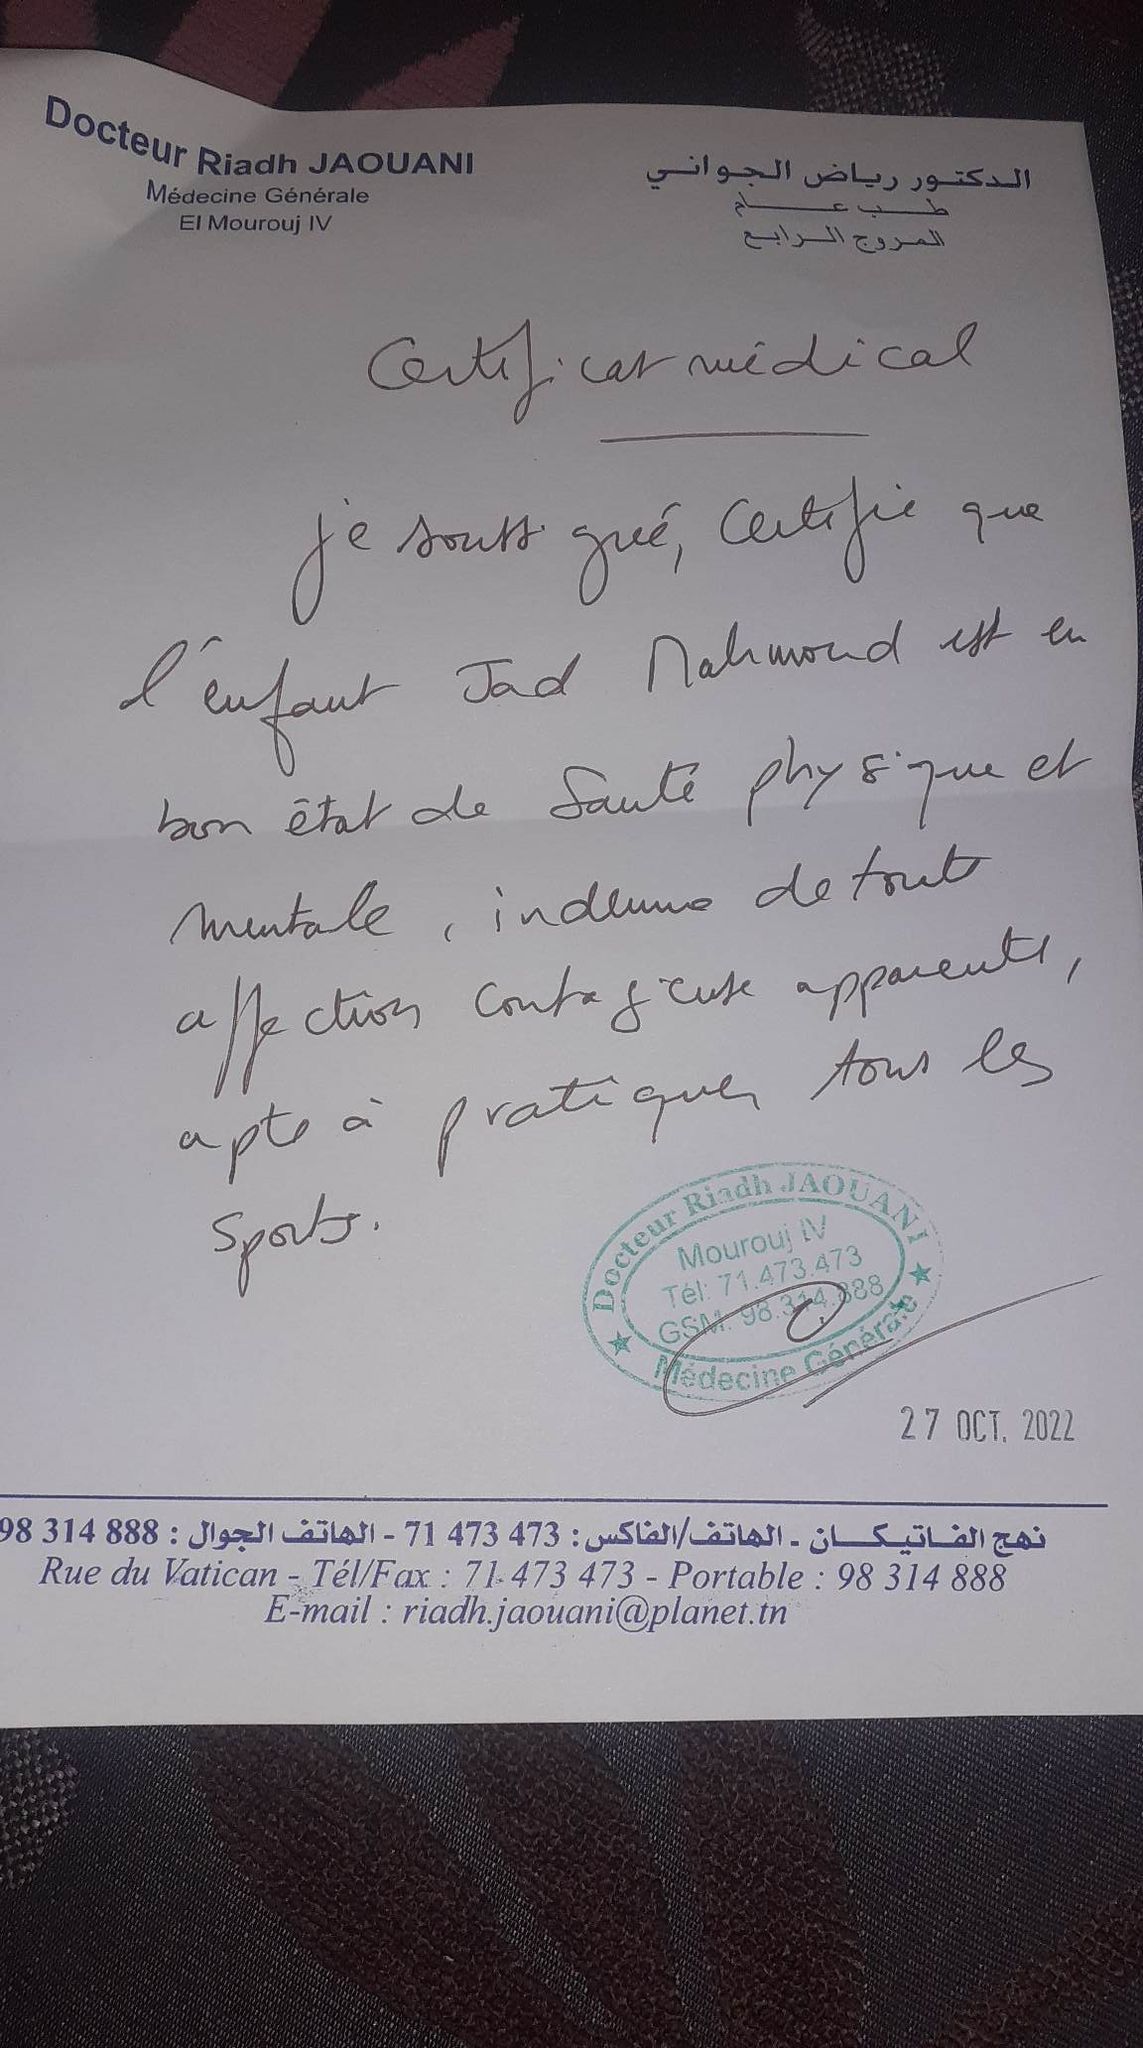 Docteur Riadh JAOUANI
Médecine Générale
El Mourouj IV
الدكتور رياض الجواني
طب عام
المروج الرابع
Certificat médical
je soussigné, Certifie que
l'enfant Jad Mahmoud est en
bon état de santé physique et
mentale, indemne de toute
affection contagieuse apparente,
apte à pratiquer tous les
sports.
Docteur Riadh JAOUANI
Mourouj IV
Tél: 71.473.473
GSM: 98.314.888
Médecine Générale
27 OCT. 2022
نهج الفاتيكان - الهاتف/الفاكس : 473 473 71 - الهاتف الجوال : 888 314 98
Rue du Vatican - Tél/Fax : 71 473 473 - Portable : 98 314 888
E-mail : riadh.jaouani@planet.tn